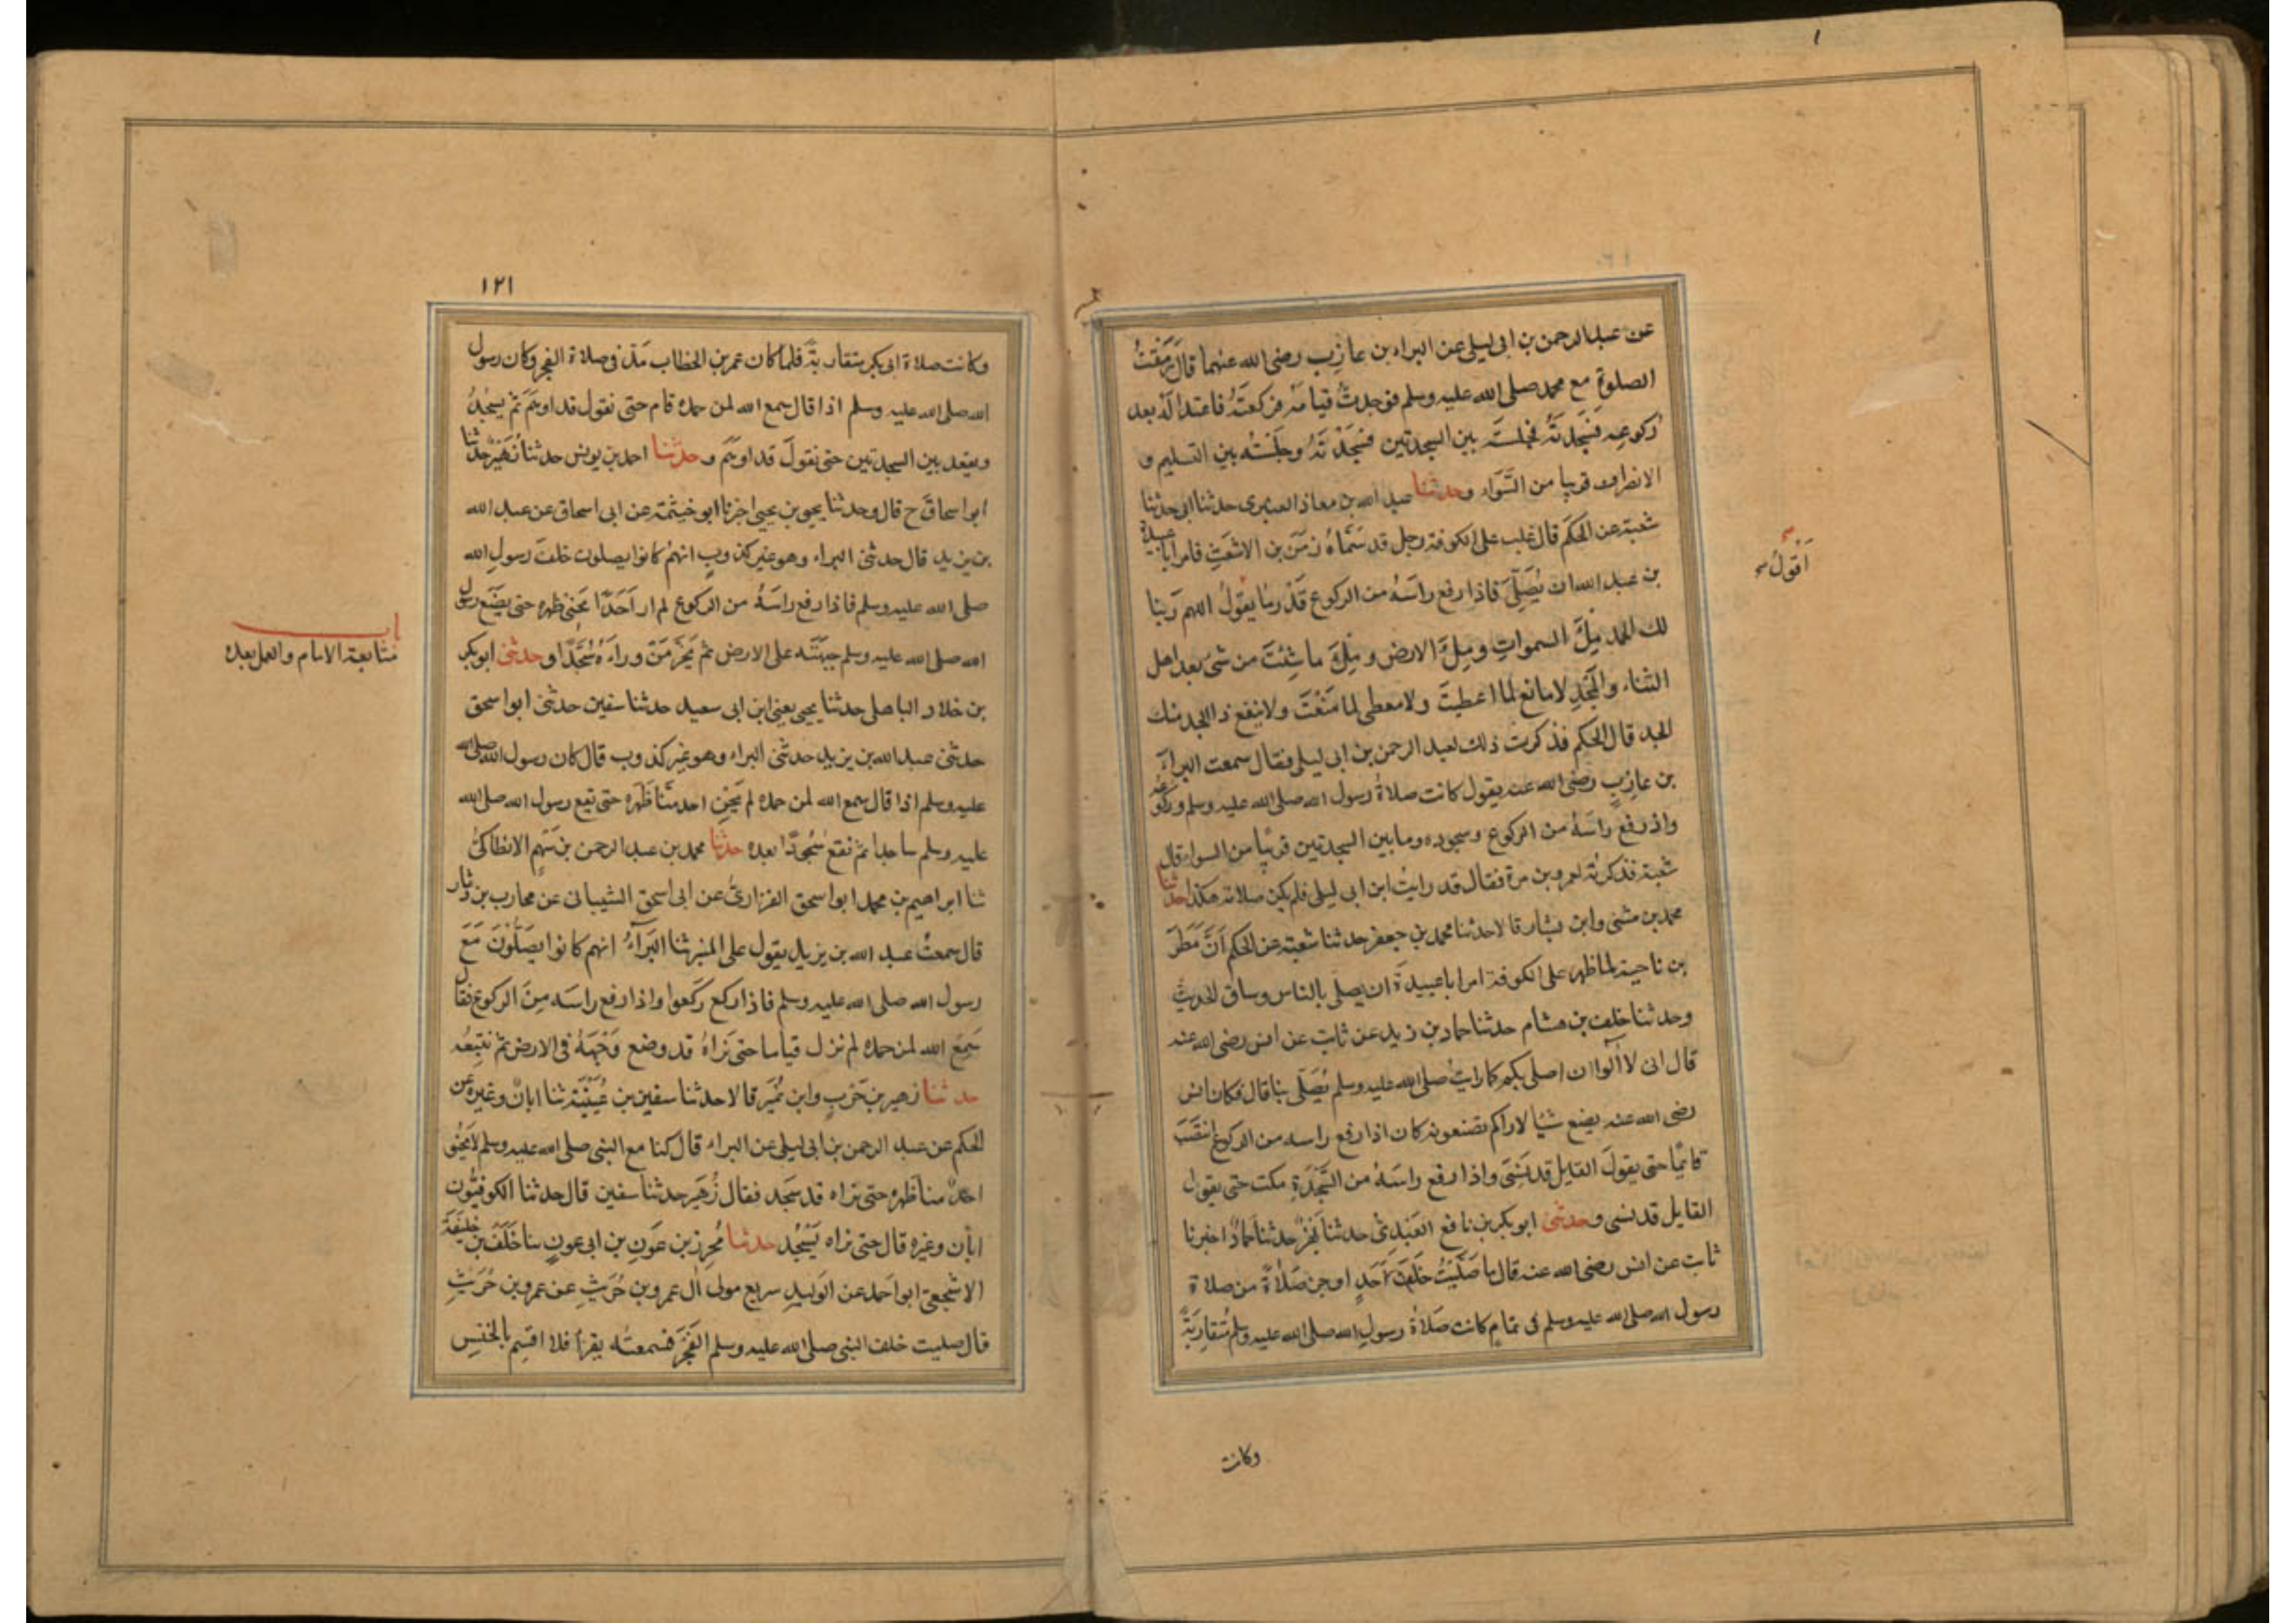 عن عبد الرحمن بن ابى ليلى عن البراء بن عازب رضى الله عنهما قال رَمَقْتُ
الصلوة مع محمد صلى الله عليه وسلم فوجدتُ قيامَه فركعتَهُ فاعتدالَهُ بعد
ركوعِه فسَجدتَهُ فجلستَه بين السجدتين فسَجْدَتَهُ وجَلْسَتَه بين التسليم و
الانصراف قريبا من السَّوَاء وحدثنا عبيد الله بن معاذ العنبرى حدثنا ابى حدثنا
شعبة عن الحكَم قال غلب على الكوفة رجل قد سَمَّاهُ زمَنَ بن الاشعَثِ فامر ابا عبيدة
بن عبد الله ان يُصَلِّىَ فاذا رفع راسَهُ من الركوع قَدْرَ ما يقولُ اللهم ربنا
لك الحمد مِلَ السمواتِ ومِلَ الارض ومِلَ ما شِئتَ من شئ بعد اهل
الثناء والمَجْدِ لا مانع لما اعطيتَ ولا معطى لما مَنَعْتَ ولا ينفع ذا الجد منك
الجد قال الحكم فذكرت ذلك لعبد الرحمن بن ابى ليلى فقال سمعت البراءَ
بن عازبٍ رضى الله عنه يقول كانت صلاةُ رسول الله صلى الله عليه وسلم وركوعُه
واذ رفع راسَهُ من الركوع وسجوده وما بين السجدتين قريبًا من السواء قال
شعبة فذكرتُه لعمرو بن مرة فقال قد رايتُ ابن ابى ليلى فلم يكن صلاته هكذا حدثنا
محمد بن مثنى وابن بشار قالا حدثنا محمد بن جعفر حدثنا شعبة عن الحكم اَنَّ مَطَرَ
بن ناجية لما ظهر على الكوفة امر ابا عبيدةَ ان يصلى بالناس وساق الحديثَ
وحدثنا خلف بن هشام حدثنا حماد بن زيد عن ثابت عن انس رضى الله عنه
قال انى لا آلوا ان اصلى بكم كما رايتُ صلى الله عليه وسلم يُصَلّى بنا قال فكان انس
رضى الله عنه يصنع شيًا لا اراكم تصنعونه كان اذا رفع راسه من الركوع انتَصَبَ
قائمًا حتى يقولَ القايل قد نَسِىَ واذا رفع راسَهُ من السَّجْدَةِ مكث حتى يقول
القايل قد نسى وحدثنى ابو بكر بن نافع العَبْدِىُّ حدثنا بَهْزٌ حدثنا حمادٌ اخبرنا
ثابت عن انس رضى الله عنه قال ما صَلَّيْتُ خَلْفَ اَحَدٍ اوجزَ صَلاةً من صلاة
رسول الله صلى الله عليه وسلم فى تمامٍ كانت صَلاةُ رسولِ الله صلى الله عليه وسلم مُتقارِبَةً
وكانت
اَقُولُ
١٢١
وكانت صلاة ابى بكر متقاربة فلما كان عمر بن الخطاب مَدَّ فى صلاة الفجر وكان رسول
الله صلى الله عليه وسلم اذا قال سمع الله لمن حمده قام حتى نقول قد اوهَمَ ثم يسجُدُ
ويقعد بين السجدتين حتى نقولَ قد اوهَمَ وحدثنا احمد بن يونس حدثنا زُهَيرٌ حدثنا
ابو اسحاقَ ح قال وحدثنا يحيى بن يحيى اخبرنا ابو خيثمة عن ابى اسحاق عن عبد الله
بن يزيد قال حدثنى البراء وهو غير كذوبٍ انهمْ كانوا يصلون خلفَ رسولِ الله
صلى الله عليه وسلم فاذا رفع راسَهُ من الركوع لم ار اَحَدًا يَحنِى ظهره حتى يضَعَ رسول
الله صلى الله عليه وسلم جبْهَتَه على الارض ثم يَخرُّ مَنْ وراءَهُ سُجَّدًا وحدثنى ابو بكر
بن خلاد الباهلى حدثنا يحيى يعنى ابن ابى سعيد حدثنا سفين حدثنى ابو اسحق
حدثنى عبد الله بن يزيد حدثنى البراء وهو غير كذوب قال كان رسول الله صلى الله
عليه وسلم اذا قال سمع الله لمن حمده لم يَحْنِ احد منَّا ظَهْرَه حتى يقع رسول الله صلى الله
عليه وسلم ساجدا ثم نقع سُجُودًا بعده حدثنا محمد بن عبد الرحمن بن سَهْمٍ الانطاكىُّ
ثنا ابراهيم بن محمد ابو اسحق الفزارىُّ عن ابى اسحق الشيبانى عن محارب بن دثار
قال سمعتُ عبد الله بن يزيد يقول على المنبر ثنا البَرآءُ انهم كانوا يصَلُّونَ مَعَ
رسول الله صلى الله عليه وسلم فاذا ركع رَكَعوا واذا رفع راسَه مِنَ الركوع فقال
سَمِعَ الله لمن حمده لم نزل قياما حتى نَراهُ قد وضع وَجْهَهُ فى الارض ثم نتبِعُه
حدثنا زهير بن حَرْبٍ وابن نُمَيْر قالا حدثنا سفين بن عُيَيْنَة ثنا ابانٌ وغيره عن
الحكم عن عبد الرحمن بن ابى ليلى عن البراء قال كنا مع النبى صلى الله عليه وسلم لا يَحْنُو
احدٌ منا ظهره حتى نراه قد سَجَد فقال زُهَير حدثنا سفين قال حدثنا الكوفيُّون
ابان وغيره قال حتى نراه يَسْجُد حدثنا مُحرز بن عَونِ بن ابى عونٍ ثنا خَلَفُ بن خليفَةَ
الاشجعىّ ابو احمد عن الوَليدِ سريع مولى ال عمرو بن حُرَيثٍ عن عمرو بن حُرَيثٍ
قال صليت خلف النبى صلى الله عليه وسلم الفَجْرَ فسمعتُه يقرأ فلا اقسِم بالخنّسِ
باب
متابعة الامام والعمل بعده